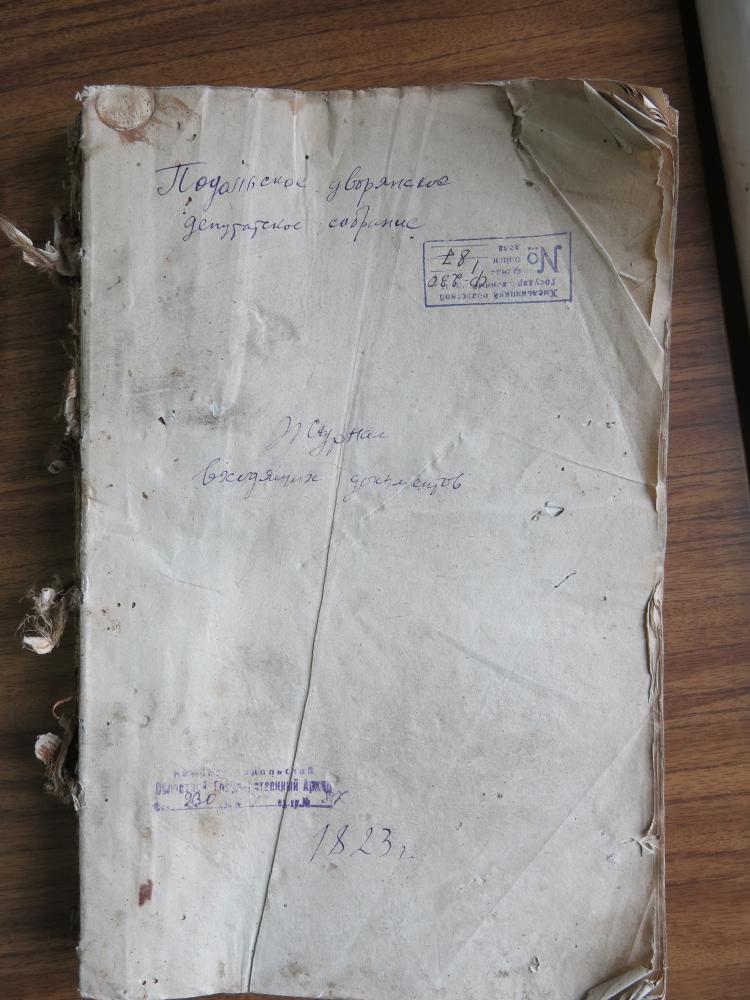 Подольское дворянское
депутатское собрание
Хмельницкий областной
государ
фонд Ф-230
опись 1
№ дела 87
Журнал
входящих документов
Областной Государственный Архив
230 ед.хр.№ 87
1823 г.